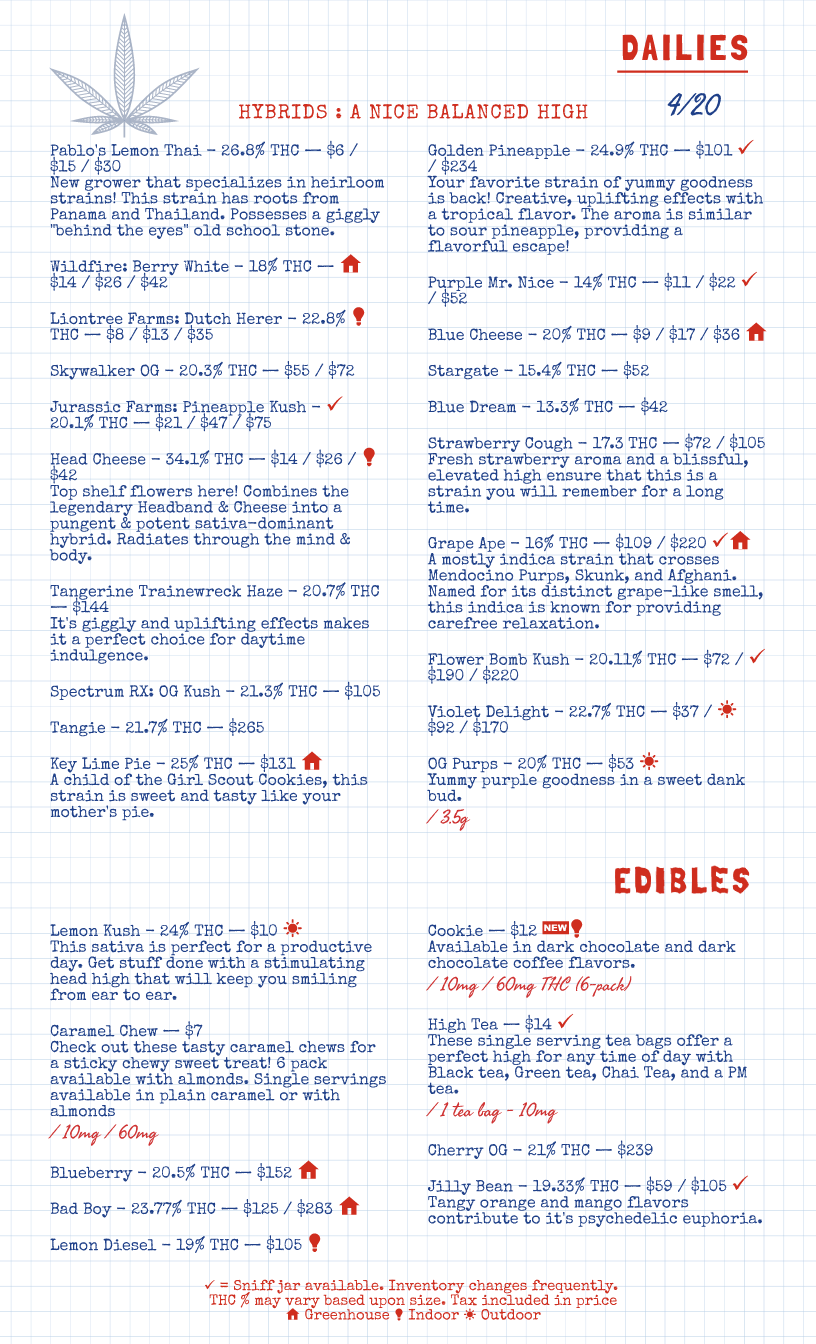 DAILIES
4/20
HYBRIDS : A NICE BALANCED HIGH
Pablo's Lemon Thai – 26.8% THC — $6 /
$15 / $30
New grower that specializes in heirloom
strains! This strain has roots from
Panama and Thailand. Possesses a giggly
"behind the eyes" old school stone.
Wildfire: Berry White – 18% THC —
$14 / $26 / $42
Liontree Farms: Dutch Herer – 22.8%
THC — $8 / $13 / $35
Skywalker OG – 20.3% THC — $55 / $72
Jurassic Farms: Pineapple Kush – ✓
20.1% THC — $21 / $47 / $75
Head Cheese – 34.1% THC — $14 / $26 /
$42
Top shelf flowers here! Combines the
legendary Headband & Cheese into a
pungent & potent sativa-dominant
hybrid. Radiates through the mind &
body.
Tangerine Trainewreck Haze – 20.7% THC
— $144
It's giggly and uplifting effects makes
it a perfect choice for daytime
indulgence.
Spectrum RX: OG Kush – 21.3% THC — $105
Tangie – 21.7% THC — $265
Key Lime Pie – 25% THC — $131
A child of the Girl Scout Cookies, this
strain is sweet and tasty like your
mother's pie.
Golden Pineapple – 24.9% THC — $101 ✓
/ $234
Your favorite strain of yummy goodness
is back! Creative, uplifting effects with
a tropical flavor. The aroma is similar
to sour pineapple, providing a
flavorful escape!
Purple Mr. Nice – 14% THC — $11 / $22 ✓
/ $52
Blue Cheese – 20% THC — $9 / $17 / $36
Stargate – 15.4% THC — $52
Blue Dream – 13.3% THC — $42
Strawberry Cough – 17.3 THC — $72 / $105
Fresh strawberry aroma and a blissful,
elevated high ensure that this is a
strain you will remember for a long
time.
Grape Ape – 16% THC — $109 / $220 ✓
A mostly indica strain that crosses
Mendocino Purps, Skunk, and Afghani.
Named for its distinct grape-like smell,
this indica is known for providing
carefree relaxation.
Flower Bomb Kush – 20.11% THC — $72 / ✓
$190 / $220
Violet Delight – 22.7% THC — $37 /
$92 / $170
OG Purps – 20% THC — $53
Yummy purple goodness in a sweet dank
bud.
/ 3.5g
EDIBLES
Lemon Kush – 24% THC — $10
This sativa is perfect for a productive
day. Get stuff done with a stimulating
head high that will keep you smiling
from ear to ear.
Caramel Chew — $7
Check out these tasty caramel chews for
a sticky chewy sweet treat! 6 pack
available with almonds. Single servings
available in plain caramel or with
almonds
/ 10mg / 60mg
Blueberry – 20.5% THC — $152
Bad Boy – 23.77% THC — $125 / $283
Lemon Diesel – 19% THC — $105
Cookie — $12 NEW
Available in dark chocolate and dark
chocolate coffee flavors.
/ 10mg / 60mg THC (6-pack)
High Tea — $14 ✓
These single serving tea bags offer a
perfect high for any time of day with
Black tea, Green tea, Chai Tea, and a PM
tea.
/ 1 tea bag - 10mg
Cherry OG – 21% THC — $239
Jilly Bean – 19.33% THC — $59 / $105 ✓
Tangy orange and mango flavors
contribute to it's psychedelic euphoria.
✓ = Sniff jar available. Inventory changes frequently.
THC % may vary based upon size. Tax included in price
Greenhouse Indoor Outdoor